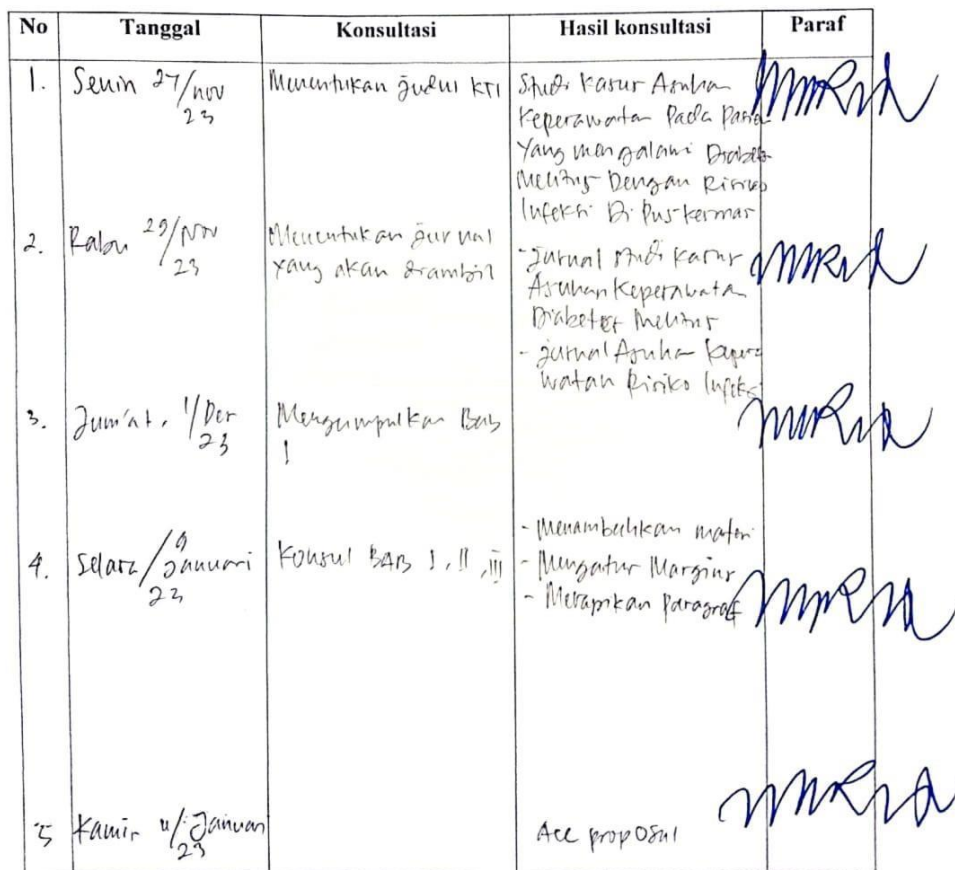 No Tanggal Konsultasi Hasil konsultasi Paraf
1. Senin 27/nov 23
Menentukan judul KTI
Studi Kasus Asuhan
Keperawatan Pada Pasie
Yang mengalami Diabetes
Melitus Dengan Risiko
Infeksi Di Puskesmas
2. Rabu 29/Nov 23
Menentukan jurnal
yang akan diambil
- Jurnal studi kasus
Asuhan Keperawatan
Diabetes Melitus
- Jurnal Asuhan Kepera
watan Risiko Infeksi
3. Jum'at, 1/Des 23
Mengumpulkan Bab
I
4. Selasa/9 Januari 23
Konsul BAB I, II, III
- Menambahkan materi
- Mengatur Margins
- Merapikan Paragraf
5 Kamis 11/Januari 23
Acc proposal